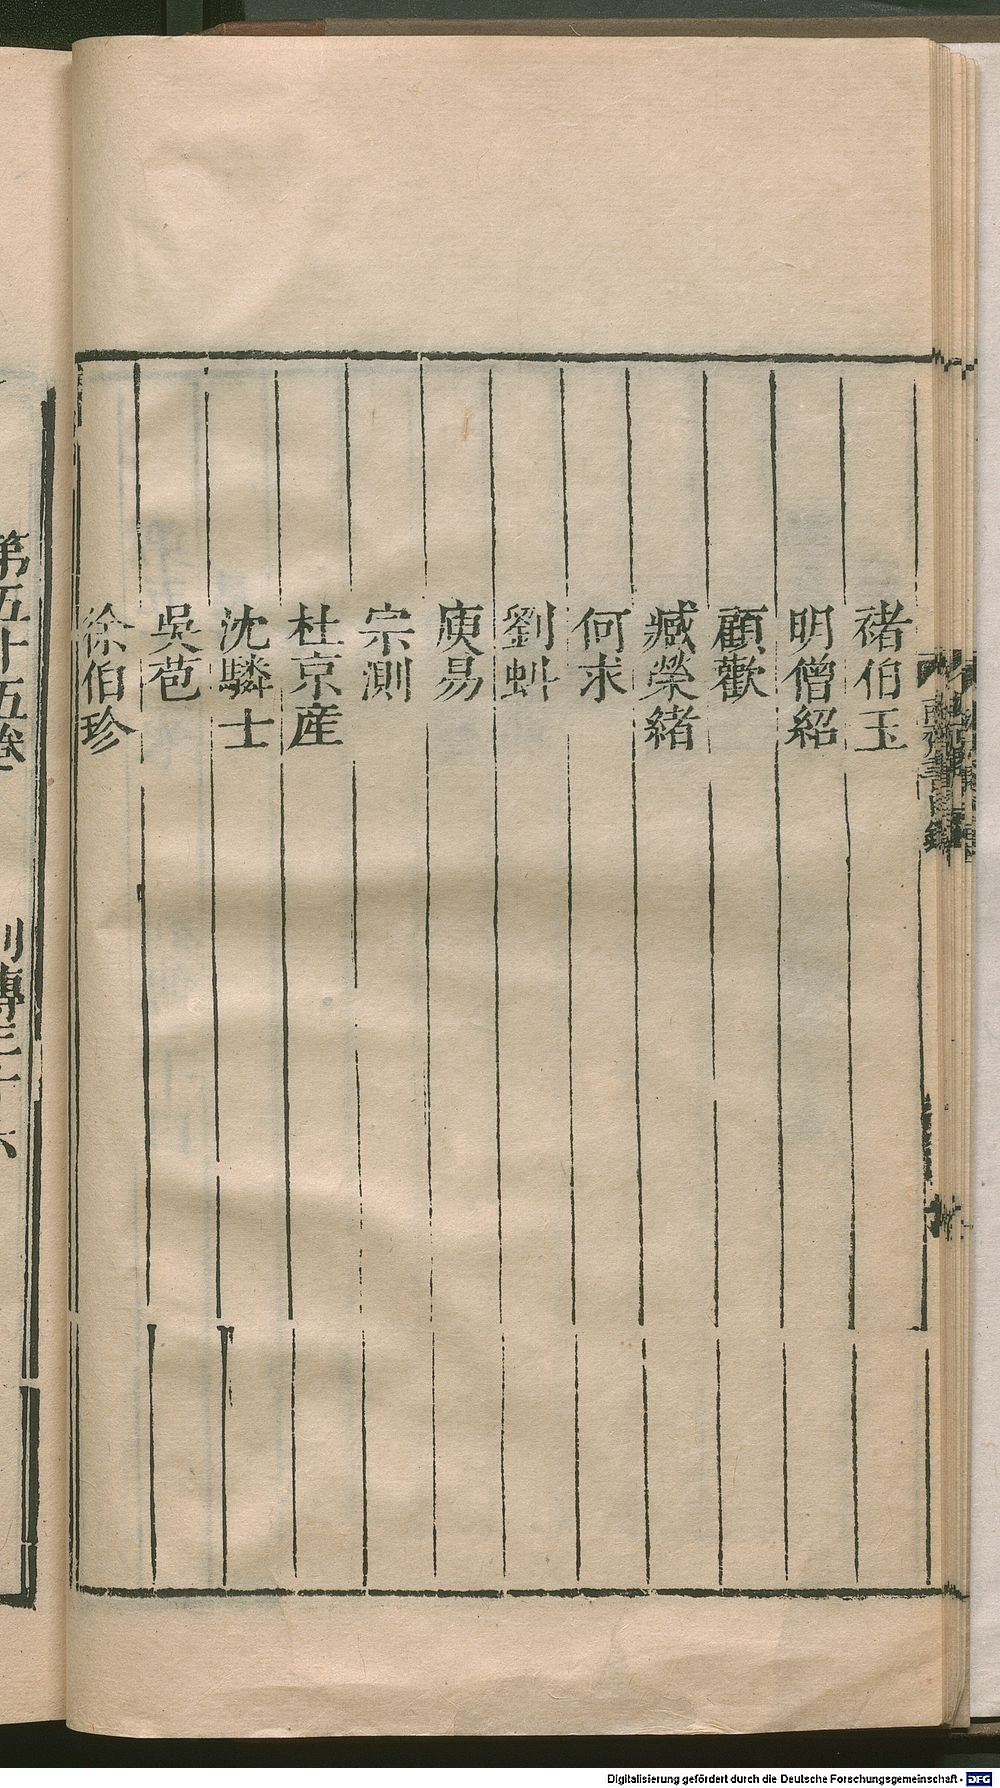 褚伯玉
明僧紹
顧歡
臧榮緒
何求
劉虯
庾易
宗測
杜京産
沈驎士
吳苞
徐伯珍
第五十五卷 列傳三十六
Digitalisierung gefördert durch die Deutsche Forschungsgemeinschaft - DFG